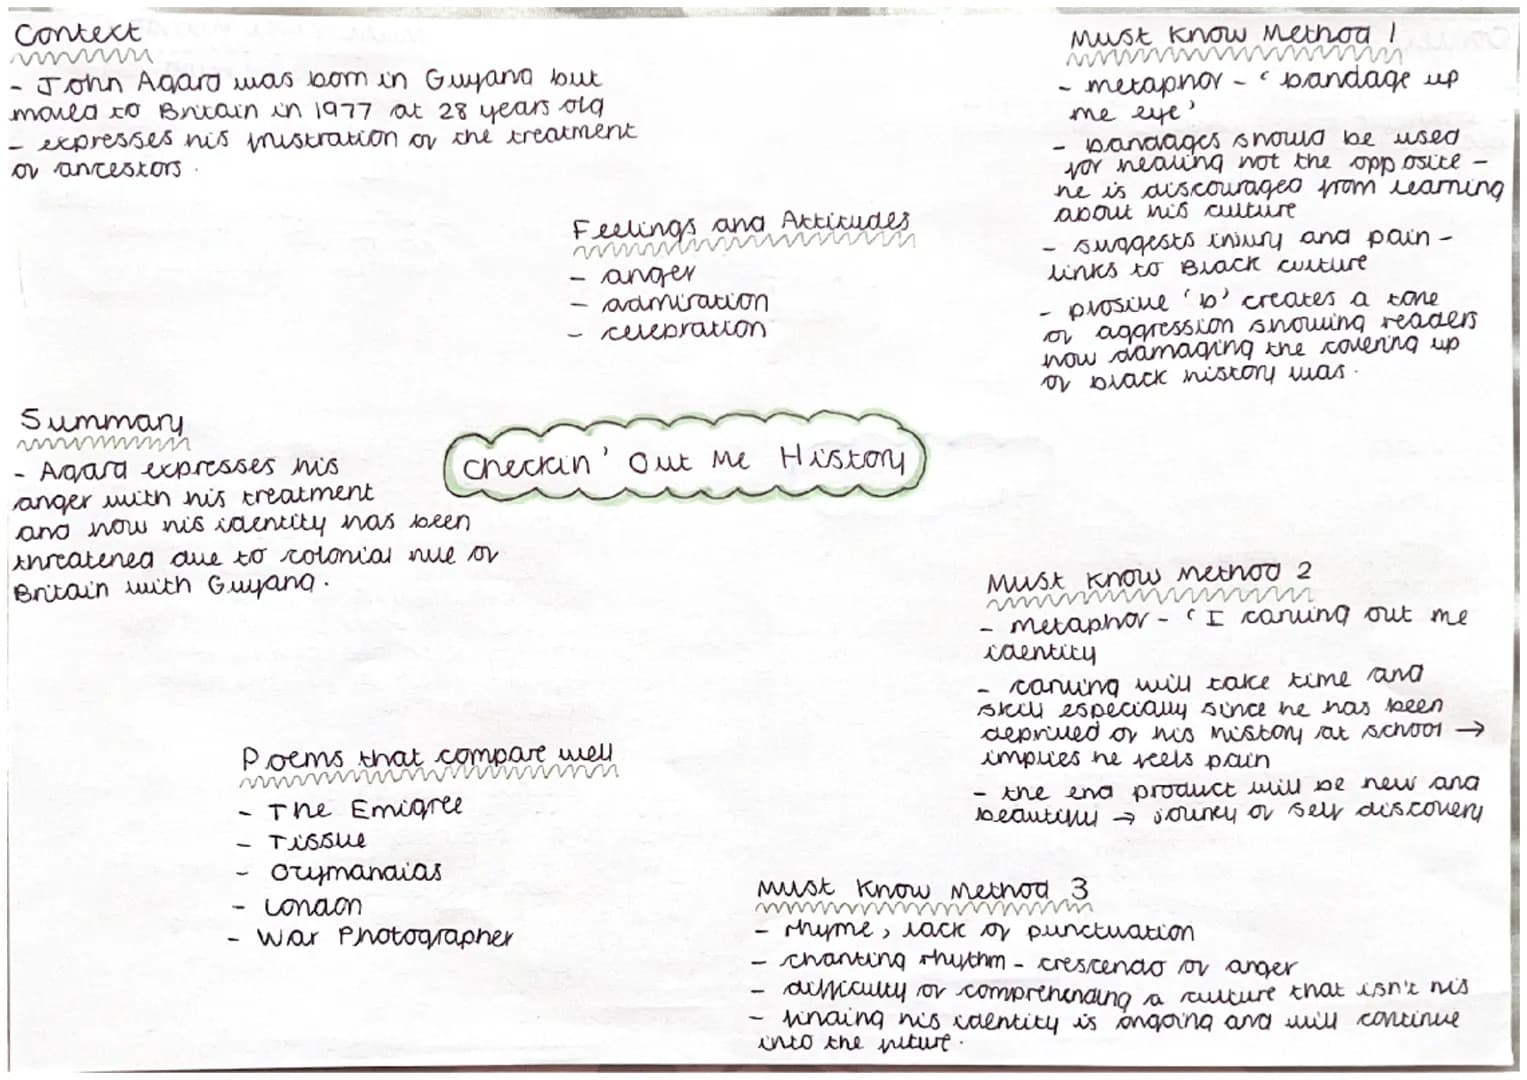 Context
- John Agard was born in Guyana but
moved to Britain in 1977 at 28 years old
- expresses his frustration of the treatment
of ancestors.
Feelings and Attitudes
- anger
- admiration
- celebration
Must Know Method 1
- metaphor - 'bandage up
me eye'
- bandages should be used
for healing not the opposite -
he is discouraged from learning
about his culture
- suggests injury and pain -
links to Black culture
- plosive 'b' creates a tone
of aggression showing readers
how damaging the covering up
of black history was.
Summary
- Agard expresses his
anger with his treatment
and how his identity has been
threatened due to colonial rule of
Britain with Guyana.
Checkin' Out Me History
Must Know Method 2
- metaphor - 'I carving out me
identity
- carving will take time and
skill especially since he has been
deprived of his history at school →
implies he feels pain
- the end product will be new and
beautiful → journey of self discovery
Poems that compare well
- The Emigree
- Tissue
- Ozymandias
- London
- War Photographer
Must Know Method 3
- rhyme, lack of punctuation
- chanting rhythm - crescendo of anger
- difficulty of comprehending a culture that isn't his
- finding his identity is ongoing and will continue
into the future.